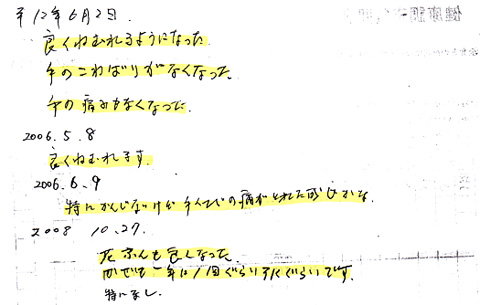 平12年6月2日.
良くねむれるようになった
手のこわばりがなくなった.
手の痛みもなくなった.
2006.5.8
良くねむれます.
2006.6.9
特にかんじないけど手くびの痛みがとれた感じかな
2008 10.27.
花ふんも良くなった
かぜも一年に1回ぐらいひくぐらいです.
特になし.